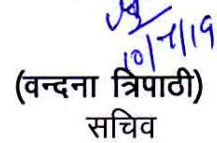 10/7/19
(वन्दना त्रिपाठी)
सचिव